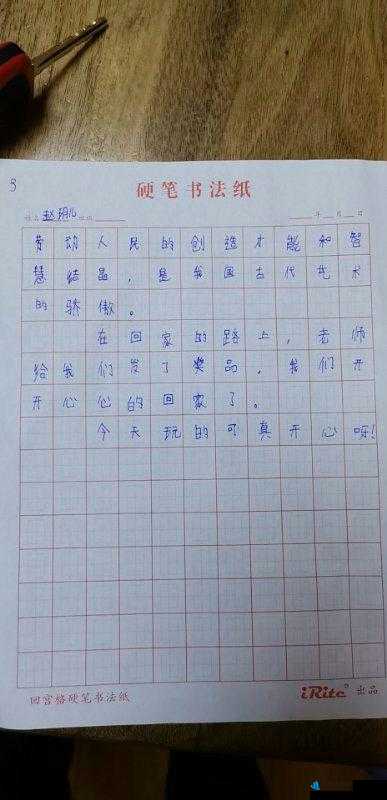 3
硬笔书法纸
姓名 赵玥儿 班级 年 月 日
劳动人民的创造才能和智
慧结晶，是我国古代艺术
的骄傲。
在回家的路上，老师
给我们发了奖品，我们开
开心心的回家了。
今天玩的可真开心呀！
回宫格硬笔书法纸
iRite® 出品